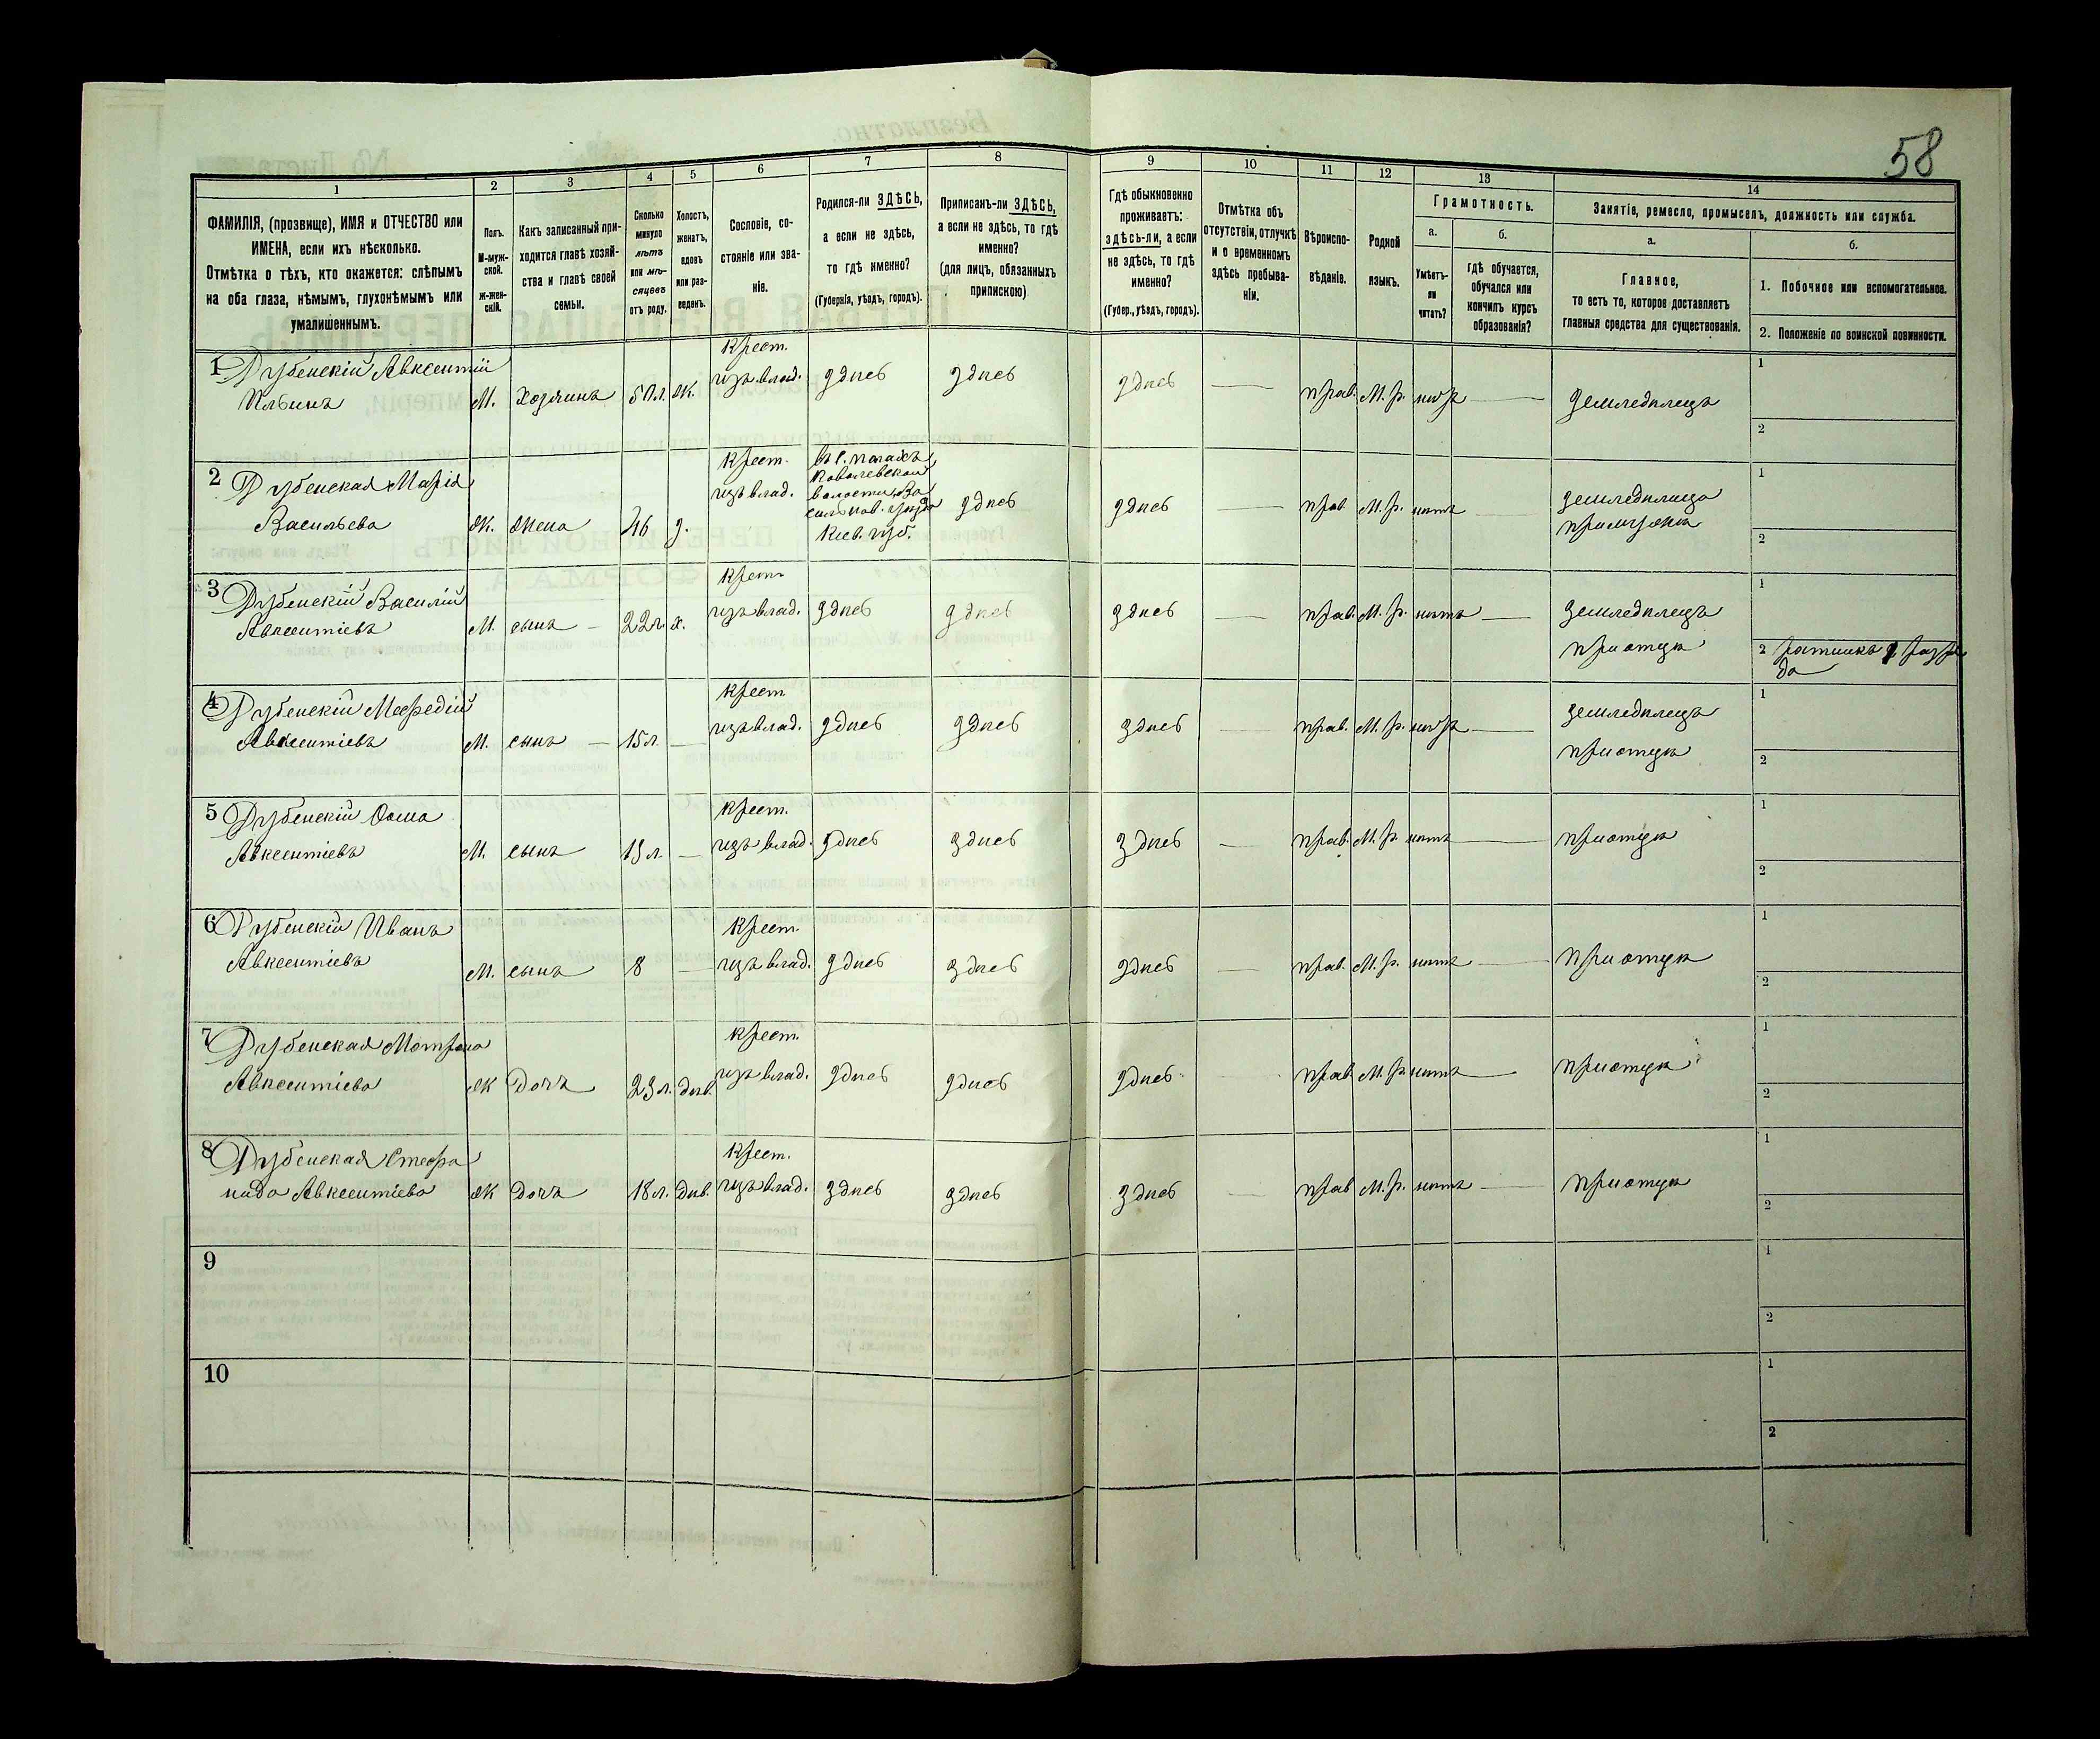 58
1 2 3 4 5 6 7 8 9 10 11 12 13 14
ФАМИЛІЯ, (прозвище), ИМЯ и ОТЧЕСТВО или ИМЕНА, если ихъ нѣсколько.
Отмѣтка о тѣхъ, кто окажется: слѣпымъ на оба глаза, нѣмымъ, глухонѣмымъ или умалишеннымъ.
Полъ. М-мужской. Ж-женскій.
Какъ записанный приходится главѣ хозяйства и главѣ своей семьи.
Сколько минуло лѣтъ или мѣсяцевъ отъ роду.
Холостъ, женатъ, вдовъ или разведенъ.
Сословіе, состояніе или званіе.
Родился-ли ЗДѢСЬ, а если не здѣсь, то гдѣ именно? (Губернія, уѣздъ, городъ).
Приписанъ-ли ЗДѢСЬ, а если не здѣсь, то гдѣ именно? (для лицъ, обязанныхъ припискою)
Гдѣ обыкновенно проживаетъ: здѣсь-ли, а если не здѣсь, то гдѣ именно? (Губер., уѣздъ, городъ).
Отмѣтка объ отсутствіи, отлучкѣ и о временномъ здѣсь пребываніи.
Вѣроисповѣданіе.
Родной языкъ.
Грамотность.
а. Умѣетъ-ли читать?
б. гдѣ обучается, обучался или кончилъ курсъ образованія?
Занятіе, ремесло, промыселъ, должность или служба.
а. Главное, то есть то, которое доставляетъ главныя средства для существованія.
б. 1. Побочное или вспомогательное.
2. Положеніе по воинской повинности.
1 Дубенскій Авксентій Ильинъ М. Хозяинъ 50 л. Ж. Крест. изъ влад. здѣсь здѣсь здѣсь — прав. М. р. нѣтъ — земледѣлецъ 1 2
2 Дубенская Марія Васильева Ж. жена 46 з. Крест. изъ влад. Ковалевской волости Васильков. уѣзда Кіев. губ. здѣсь здѣсь — прав. М. р. нѣтъ — земледѣлица при мужѣ 1 2
3 Дубенскій Василій Авксентіевъ М. сынъ — 22 л. х. Крест. изъ влад. здѣсь здѣсь здѣсь — прав. М. р. нѣтъ — земледѣлецъ при отцѣ 1 2 ратникъ разряда
4 Дубенскій Мефедій Авксентіевъ М. сынъ — 15 л. — Крест изъ влад. здѣсь здѣсь здѣсь — прав. М. р. нѣтъ — земледѣлецъ при отцѣ 1 2
5 Дубенскій Ѳома Авксентіевъ М. сынъ 13 л. — Крест. изъ влад. здѣсь здѣсь здѣсь — прав. М. р. нѣтъ — при отцѣ 1 2
6 Дубенскій Иванъ Авксентіевъ М. сынъ 8 — Крест. изъ влад. здѣсь здѣсь здѣсь — прав. М. р. нѣтъ — при отцѣ 1 2
7 Дубенская Мотрона Авксентіева Ж Дочь 23 л. дѣв. Крест. изъ влад. здѣсь здѣсь здѣсь — прав. М. р. нѣтъ — при отцѣ 1 2
8 Дубенская Стефанида Авксентіева Ж Дочь 18 л. дѣв. Крест. изъ влад. здѣсь здѣсь здѣсь — прав М. р. нѣтъ — при отцѣ 1 2
9 1 2
10 1 2